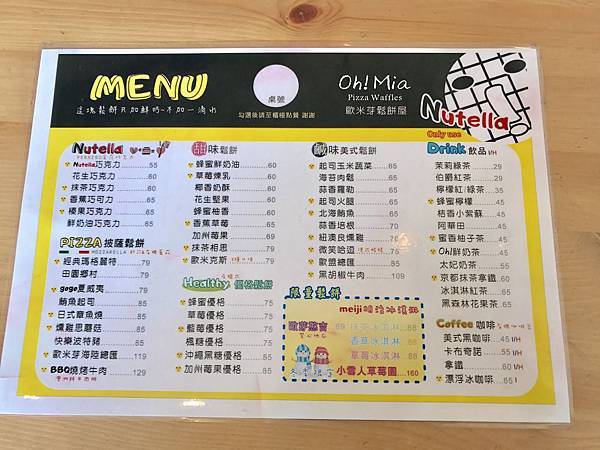 MENU
這塊鬆餅只加鮮奶~不加一滴水
桌號
勾選後請至櫃檯點餐 謝謝
Oh! Mia
Pizza Waffles
歐米芽鬆餅屋
Nutella
Only use
Nutella
Nutella巧克力 55
花生巧克力 60
抹茶巧克力 60
香蕉巧可力 65
榛果巧克力 65
鮮奶油巧克力 65
PIZZA 披薩鬆餅
MOZZARELLA
經典瑪格麗特 79
田園鄉村 79
gogo夏威夷 79
鮪魚起司 85
日式章魚燒 85
燻雞思蘑菇 85
快樂波特豬 85
歐米芽海陸總匯 119
BBQ燒烤牛肉 129
甜味鬆餅
蜂蜜鮮奶油 60
草莓煉乳 60
椰香奶酥 60
花生堅果 60
蜂蜜柚香 60
香蕉草莓 65
加州莓果 69
抹茶相思 79
歐米克斯
Healthy 優格鬆餅
蜂蜜優格 75
草莓優格 75
藍莓優格 75
楓糖優格 75
沖繩黑糖優格 85
加州莓果優格 85
鹹味美式鬆餅
起司玉米蔬菜 65
海苔肉鬆 65
蒜香蘿勒 65
起司火腿 65
北海鮪魚 65
蒜香培根 70
紐澳良燻雞 70
微笑哈逗
歐盟總匯 89
黑胡椒牛肉 109
限量製餅
meiji明治冰淇淋
89 抹茶冰淇淋 85
香草冰淇淋 85
草莓冰淇淋 85
小雪人草莓園 160
Drink 飲品 I/H
茉莉綠茶 29
伯爵紅茶 29
檸檬紅/綠茶 35
蜂蜜檸檬 45
桔香小紫蘇 45
阿華田 45
蜜香柚子茶 45
Oh!鮮奶茶 55
太妃奶茶 55
京都抹茶拿鐵 60
冰淇淋紅茶 60
黑森林花果茶 60
Coffee 咖啡
美式黑咖啡 45 I/H
卡布奇諾 55 I/H
拿鐵 60 I/H
漂浮冰咖啡 85 I